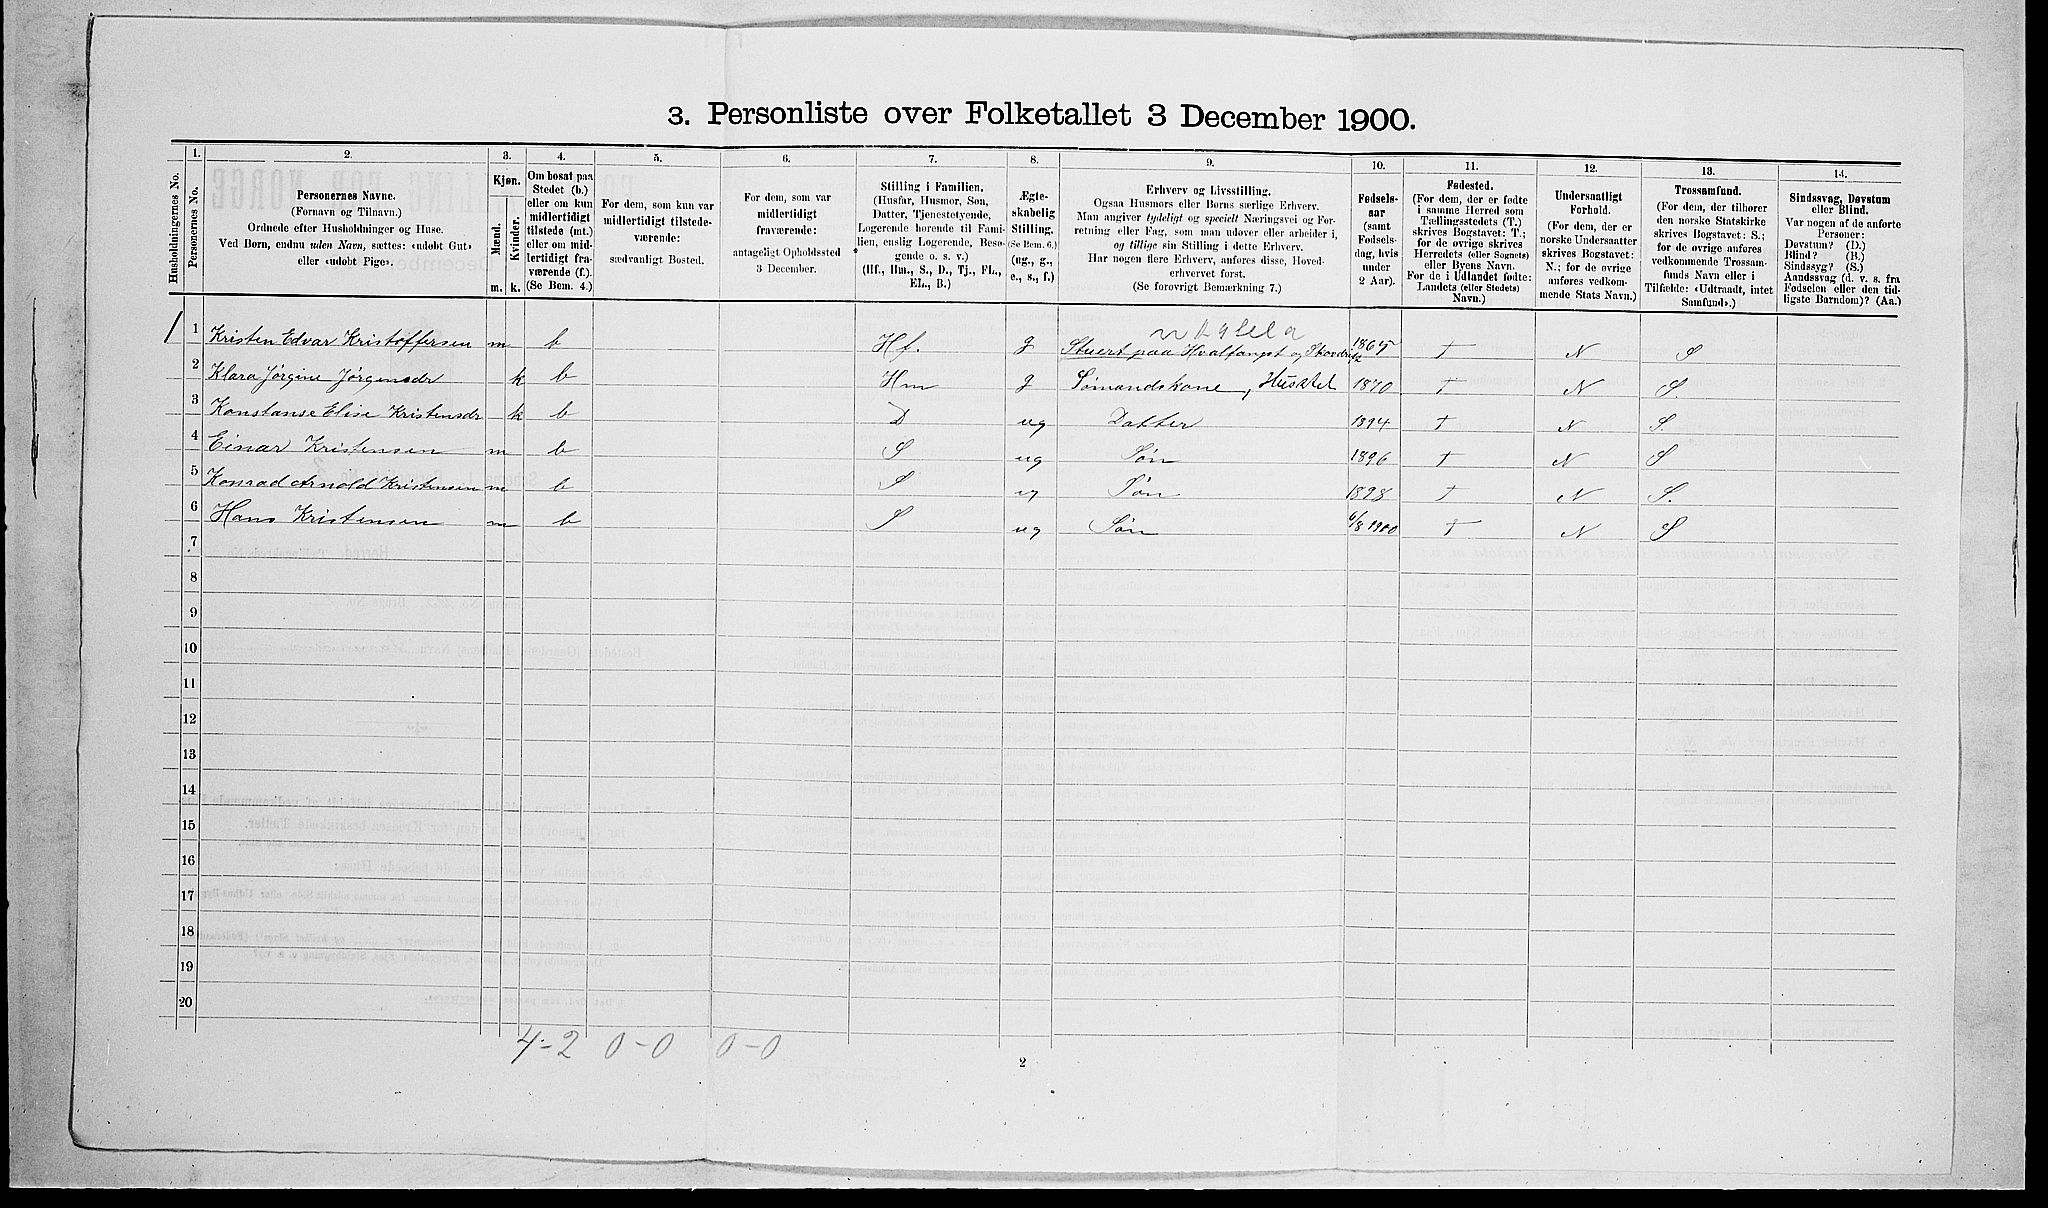 3. Personliste over Folketallet 3 December 1900.
Husholdningernes No.
1. Personernes No.
2. Personernes Navne. (Fornavn og Tilnavn.) Ordnede efter Husholdninger og Huse. Ved Børn, endnu uden Navn, sættes: «udøbt Gut» eller «udøbt Pige».
3. Kjøn. Mænd. m. Kvinder. k.
4. Om bosat paa Stedet (b.) eller om kun midlertidigt tilstede (mt.) eller om midlertidigt fraværende (f.). (Se Bem. 4.)
5. For dem, som kun var midlertidigt tilstedeværende: sædvanligt Bosted.
6. For dem, som var midlertidigt fraværende: antageligt Opholdssted 3 December.
7. Stilling i Familien. (Husfar, Husmor, Søn, Datter, Tjenestetyende, Logerende hørende til Familien, enslig Logerende, Besøgende o. s. v.) (Hf., Hm., S., D., Tj., FL., EL., B.)
8. Ægteskabelig Stilling. (Se Bem. 6.) (ug., g., e., s., f.)
9. Erhverv og Livsstilling. Ogsaa Husmors eller Børns særlige Erhverv. Man angiver tydeligt og specielt Næringsvei og Forretning eller Fag, som man udøver eller arbeider i, og tillige sin Stilling i dette Erhverv. Har nogen flere Erhverv, anføres disse, Hovederhvervet først. (Se forøvrigt Bemærkning 7.)
10. Fødselsaar (samt Fødselsdag, hvis under 2 Aar).
11. Fødested. (For dem, der er fødte i samme Herred som Tællingsstedets (T.) skrives Bogstavet: T.; for de øvrige skrives Herredets (eller Sognets) eller Byens Navn. For de i Udlandet fødte: Landets (eller Stedets) Navn.)
12. Undersaatligt Forhold. (For dem, der er norske Undersaatter skrives Bogstavet: N.; for de øvrige anføres vedkommende Stats Navn.)
13. Trossamfund. (For dem, der tilhører den norske Statskirke skrives Bogstavet: S.; for de øvrige anføres vedkommende Trossamfunds Navn eller i Tilfælde: «Udtraadt, intet Samfund».)
14. Sindssvag, Døvstum eller Blind. Var nogen af de anførte Personer: Døvstum? (D.) Blind? (B.) Sindssyg? (S.) Aandssvag (d. v. s. fra Fødselen eller den tidligste Barndom)? (Aa.)
1 1 Kristen Edvar Kristoffersen m b Hf. g Stuert paa Hvalfangst og 1865 T N S
2 Klara Jørgine Jørgensdr k b Hm g Sømandskone, Husstel 1870 T N S.
3 Konstanse Elise Kristensdr k b D ug Datter 1894 T N S.
4 Einar Kristensen m b S ug Søn 1896 T N S
5 Konrad Arnold Kristensen m b S ug Søn 1898 T N S.
6 Hans Kristensen m b S ug Søn 6/8 1900 T N S
7
8
9
10
11
12
13
14
15
16
17
18
19
20
4-2 0-0 0-0
2